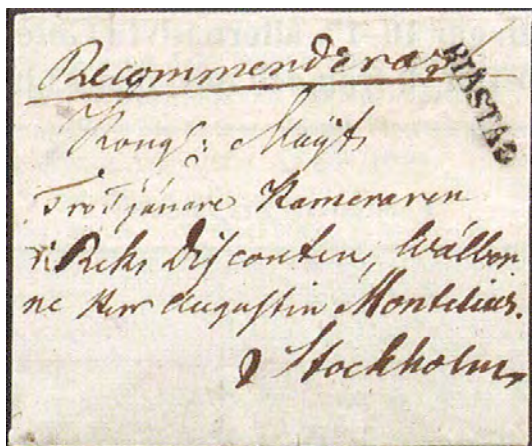 Recommenderas
BIASTAD
Kongl: Majts
Trotjänare Kameraren
i Riks Disconten, Wälbor
ne Herr Augustin Montelius.
Stockholm